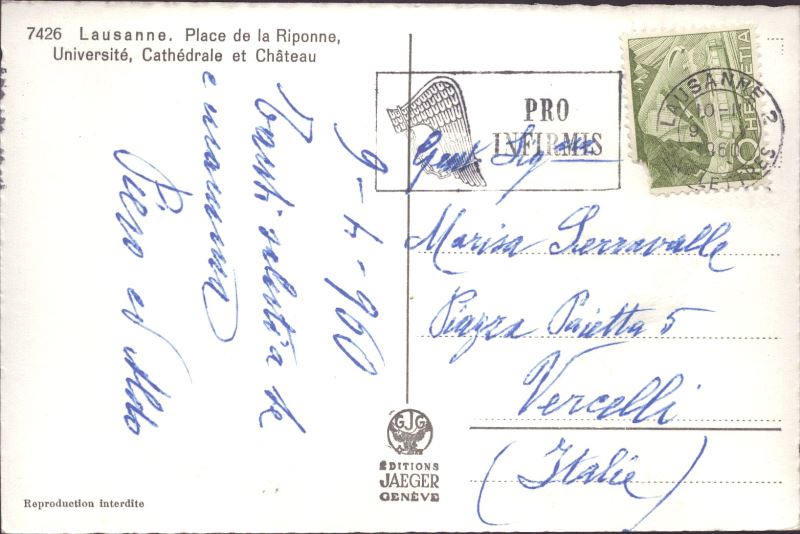 7426 Lausanne. Place de la Riponne,
Université, Cathédrale et Château
9-4-960
Tanti saluti a te
e mamma
Piero ed Aldo
PRO
INFIRMIS
HELVETIA
LAUSANNE 2
10
9
1960
Gent. Sig.na
Marisa Serravalle
Piazza Paietta 5
Vercelli
(Italie)
GJG
ÉDITIONS
JAEGER
GENÈVE
Reproduction interdite